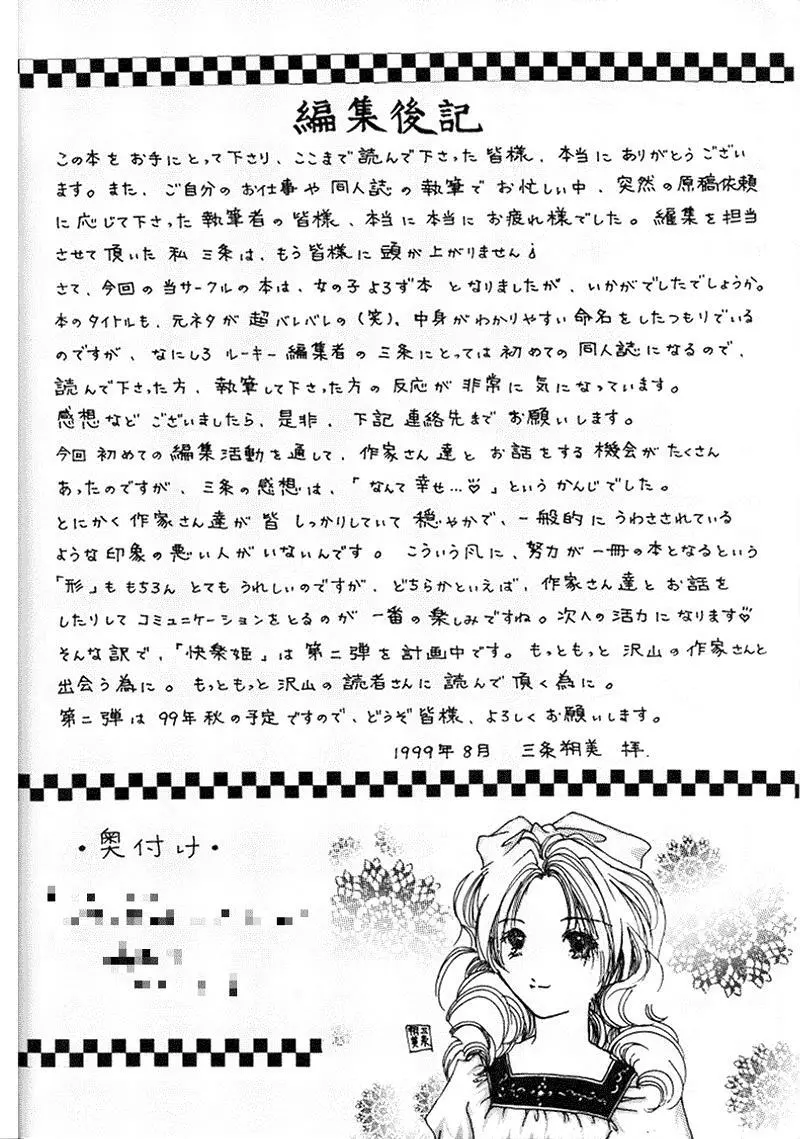 編集後記
この本を お手にとって下さり、ここまで 読んで下さった 皆様、本当に ありがとうござい
ます。また、ご自分の お仕事や 同人誌の 執筆で お忙しい中、突然の原稿依頼
に応じて下さった 執筆者の 皆様、本当に 本当に お疲れ様でした。編集を担当
させて頂いた 私 三条は、もう皆様に 頭が上がりません♩
さて、今回の当サークルの本は、女の子よろず本 となりましたが、いかがでしたでしょうか。
本のタイトルも、元ネタが 超バレバレの(笑)、中身がわかりやすい命名をしたつもりでいる
のですが、なにしろ ルーキー編集者の 三条にとっては 初めての 同人誌になるので、
読んで下さった方、執筆して下さった方の 反応が 非常に 気になっています。
感想など ございましたら、是非、下記 連絡先まで お願いします。
今回 初めての 編集活動を通して、作家さん達と お話をする 機会が たくさん
あったのですが、三条の感想は、「なんて 幸せ…♡」という かんじでした。
とにかく 作家さん達が 皆 しっかりしていて 穏やかで、一般的に うわさされている
ような 印象の 悪い人が いないんです。こういう風に、努力が 一冊の本となるという
「形」も もちろん とても うれしいのですが、どちらかといえば、作家さん達と お話を
したりして コミュニケーションをとるのが 一番の 楽しみですね。次への 活力に なります♡
そんな訳で、「快楽姫」は 第二弾を 計画中です。もっともっと 沢山の 作家さんと
出会う為に。もっともっと 沢山の 読者さんに 読んで 頂く為に。
第二弾は 99年秋の予定ですので、どうぞ皆様、よろしくお願いします。
1999年8月 三条朔美 拝.
・奥付け・
三条
朔美